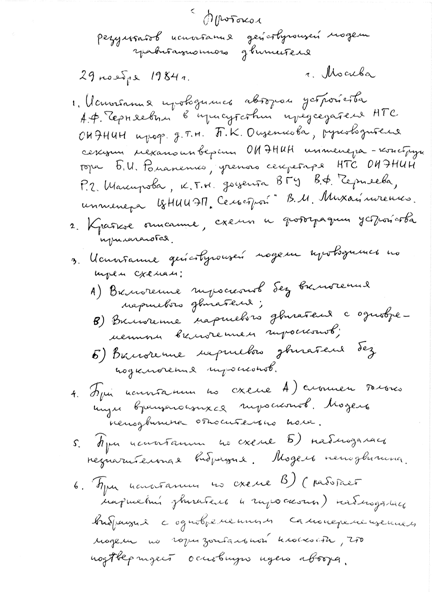 Протокол
результатов испытания действующей модели
гравитационного двигателя
29 ноября 1984 г. г. Москва
1. Испытания проводились автором устройства
А.Ф. Черняевым в присутствии председателя НТС
ОИЭНИН проф. д.т.н. П.К. Ощепкова, руководителя
секции механоинверсии ОИЭНИН инженера-констру
тора Б.И. Романенко, ученого секретаря НТС ОИЭНИН
Р.Г. Шакирова, к.т.н. доцента ВГУ В.Ф. Черняева,
инженера ЦНИИЭП "Сельстрой" В.М. Михайличенко.
2. Краткое описание, схемы и фотографии устройства
прилагаются.
3. Испытание действующей модели проводились по
трем схемам:
А) Включение гироскопов без включения
маршевого двигателя;
В) Включение маршевого двигателя с одновре-
менным включением гироскопов;
Б) Включение маршевого двигателя без
подключения гироскопов.
4. При испытании по схеме А) слышен только
шум вращающихся гироскопов. Модель
неподвижна относительно пола.
5. При испытании по схеме Б) наблюдалась
незначительная вибрация. Модель неподвижна.
6. При испытании по схеме В) (работает
маршевый двигатель и гироскопы) наблюдались
вибрация с одновременным самоперемещением
модели по горизонтальной плоскости, что
подтверждает основную идею автора.